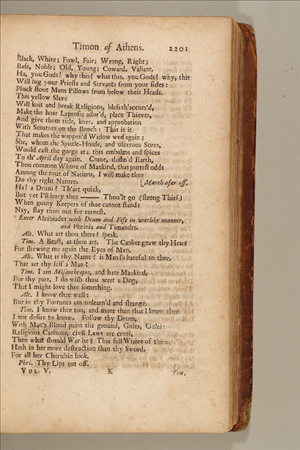 Timon of Athens. 2201
Black, White; Fowl, Fair; Wrong, Right;
Base, Noble; Old, Young; Coward, Valiant.
Ha, you Gods! why this? what this, you Gods? why, this
Will lug your Priests and Servants from your sides:
Pluck stout Mens Pillows from below their Heads.
This yellow Slave
Will knit and break Religions, bless th'accurs'd,
Make the hoar Leprosie ador'd, place Thieves,
And give them title, knee, and approbation
With Senators on the Bench: This is it
That makes the wappen'd Widow wed again;
She, whom the Spittle-House, and ulcerous Sores,
Would cast the gorge at; this embalms and Spices
To th' April day again. Come, damn'd Earth,
Thou common Whore of Mankind, that puttest odds
Among the rout of Nations, I will make thee
Do thy right Nature. [March afar off.
Ha! a Drum? Th'art quick,
But yet I'll bury thee —— Thou'lt go (strong Thief)
When gouty Keepers of thee cannot stand:
Nay, stay thou out for earnest.
Enter Alcibiades with Drum and Fife in warlike manner,
and Phrinia and Timandra.
Alc. What art thou there? speak.
Tim. A Beast, as thou art. The Canker gnaw thy Heart
For shewing me again the Eyes of Man.
Alc. What is thy Name? is Man so hateful to thee,
That art thy self a Man?
Tim. I am Misanthropos, and hate Mankind.
For thy part, I do wish thou wert a Dog,
That I might love thee something.
Alc. I know thee well:
But in thy Fortunes am unlearn'd and strange.
Tim. I know thee too, and more than that I know thee
I not desire to know. Follow thy Drum,
With Man's Blood paint the ground, Gules, Gules:
Religious Cannons, civil Laws are cruel,
Then what should War be? This fell Whore of thine,
Hath in her more destruction than thy Sword,
For all her Cherubin look.
Phri. Thy Lips rot off.
VOL. V. K Tim.